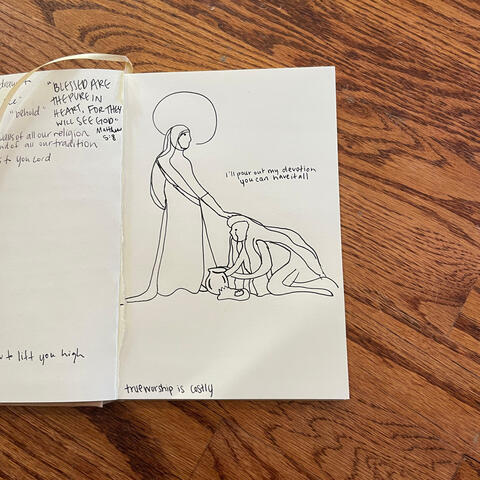 "BLESSED ARE
THE PURE IN
HEART, FOR THEY
WILL SEE GOD"
Matthew
5:8
"behold"
of all our religion
of all our tradition
to you Lord
to lift you high
i'll pour out my devotion
you can have it all
true worship is costly